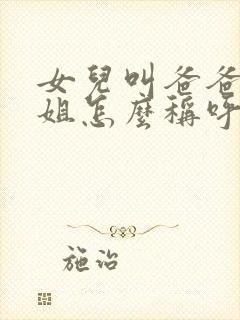 女兒叫爸爸
姐怎麼稱呼
施治